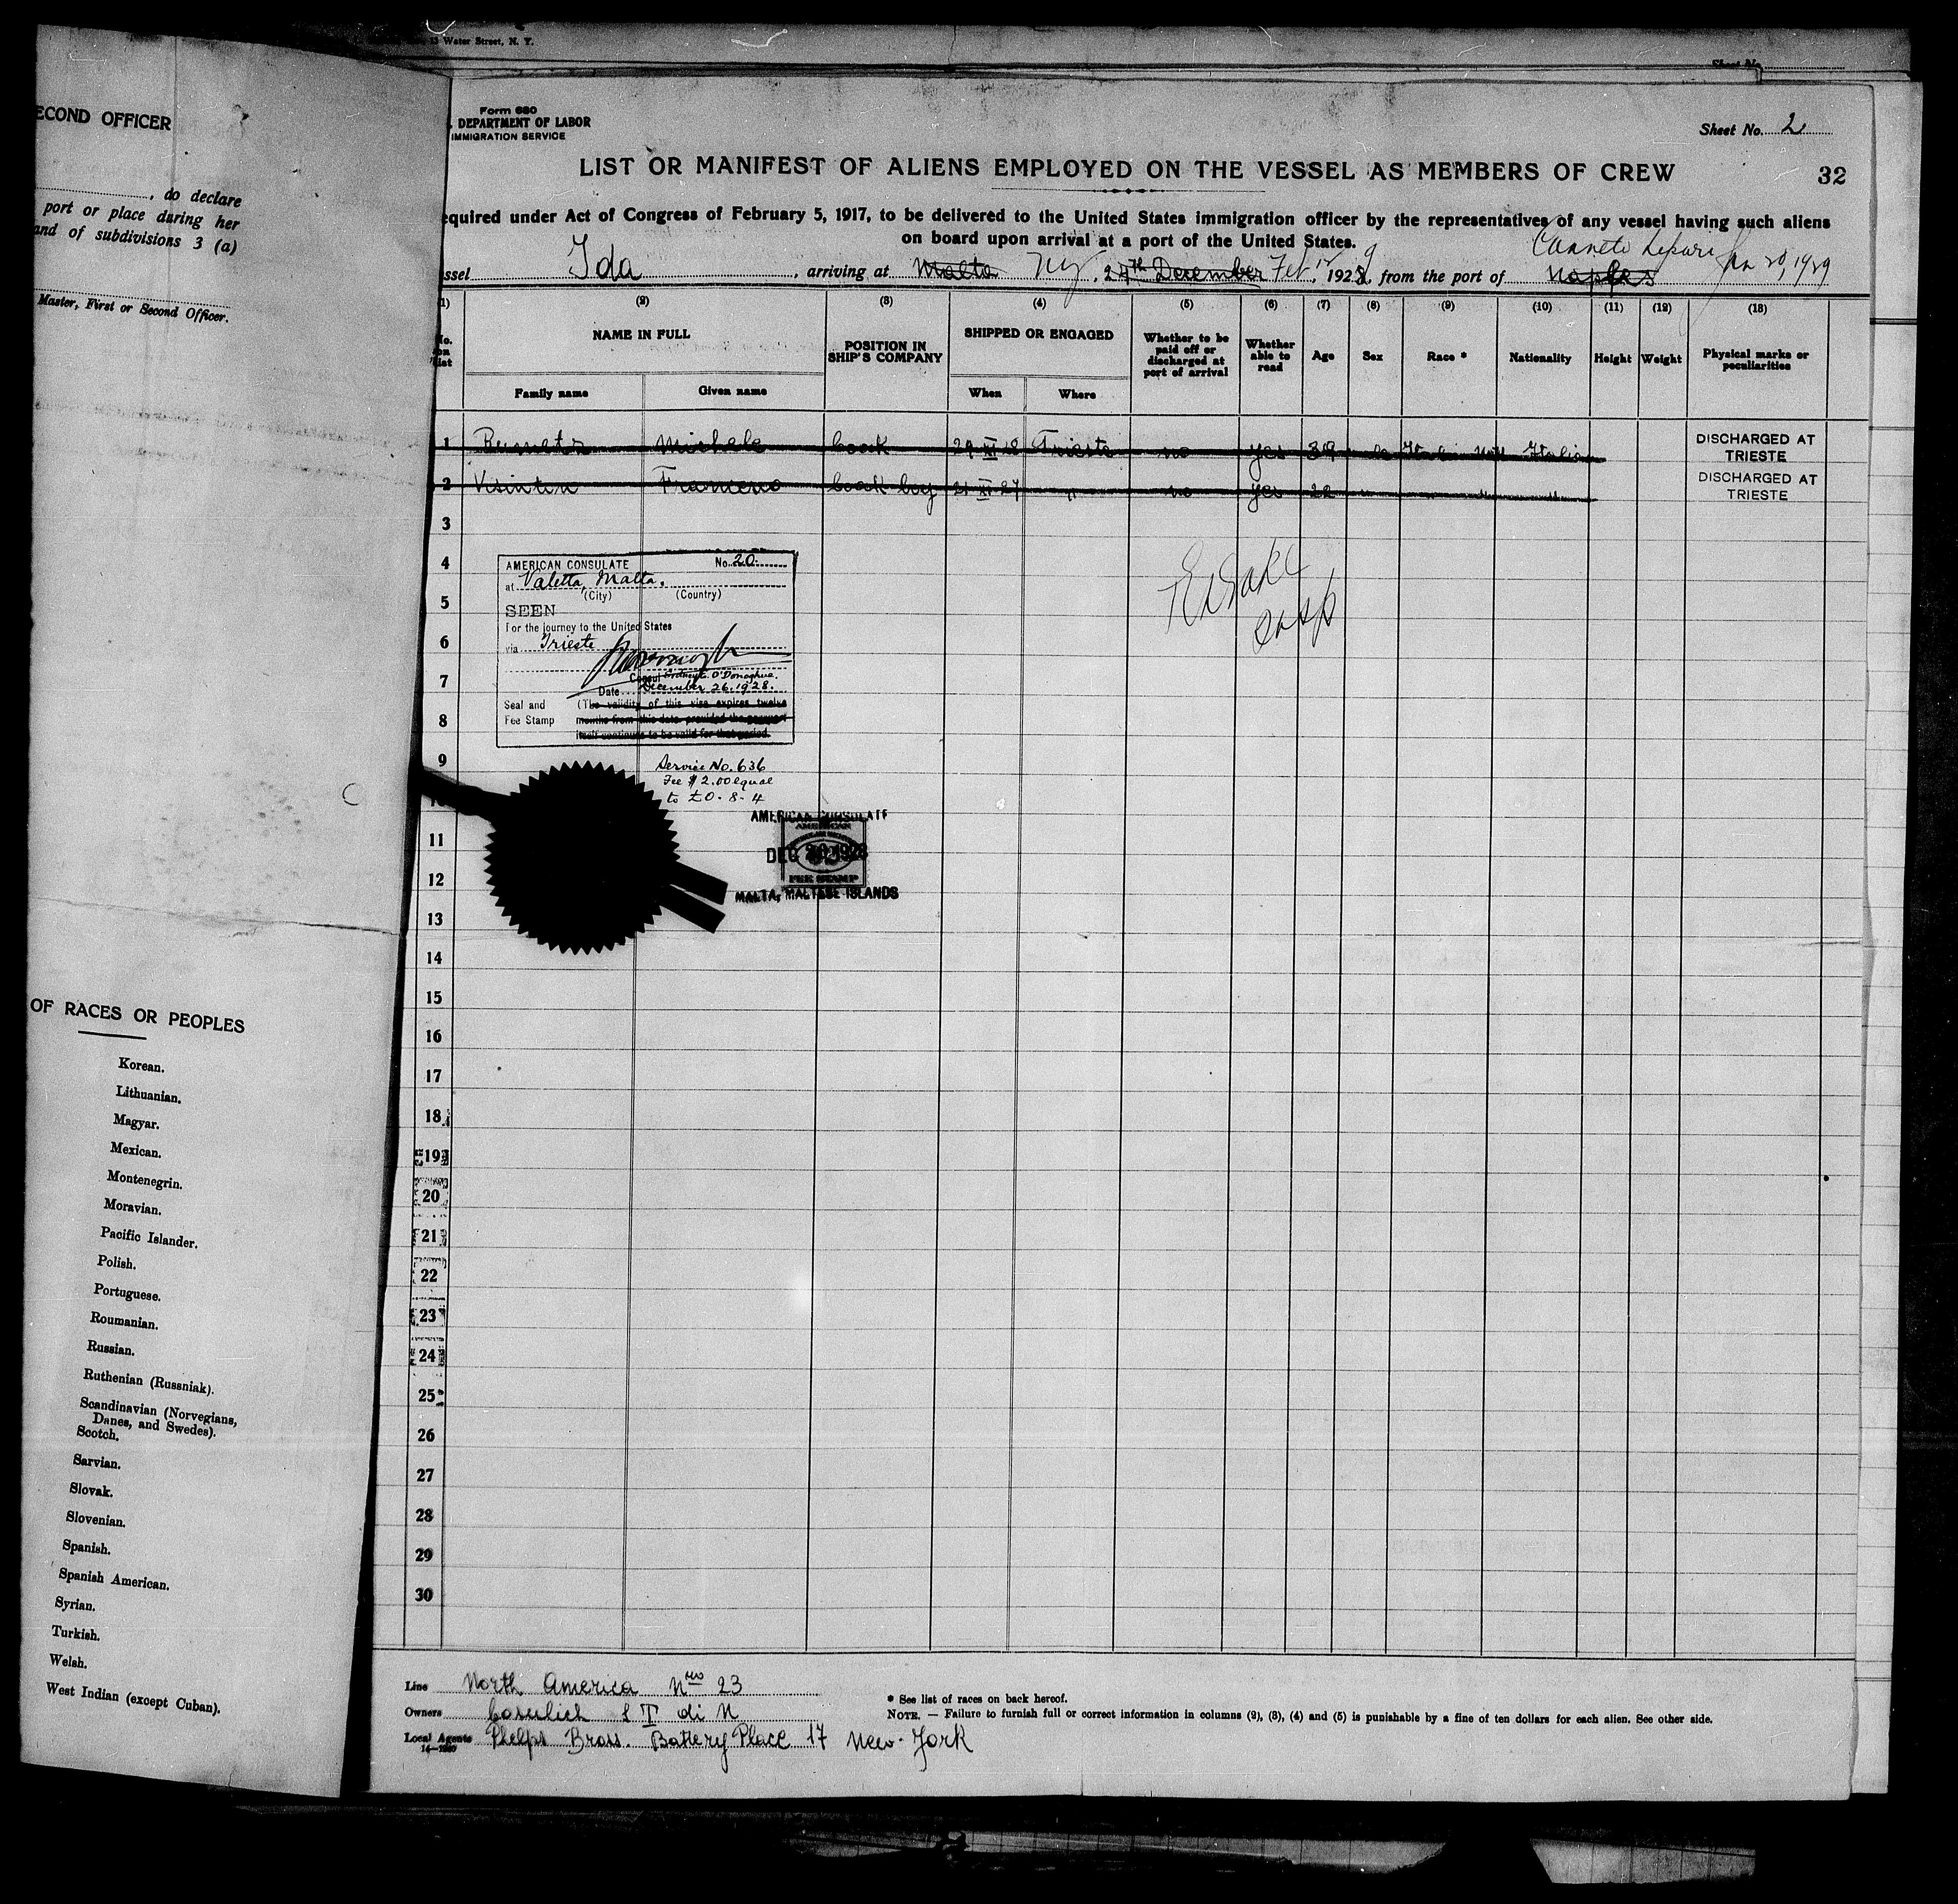 13 Water Street, N. Y.
Sheet No.
ECOND OFFICER
, do declare
port or place during her
and of subdivisions 3 (a)
Master, First or Second Officer.
OF RACES OR PEOPLES
Korean.
Lithuanian.
Magyar.
Mexican.
Montenegrin.
Moravian.
Pacific Islander.
Polish.
Portuguese.
Roumanian.
Russian.
Ruthenian (Russniak).
Scandinavian (Norvegians,
Danes, and Swedes).
Scotch.
Sarvian.
Slovak.
Slovenian.
Spanish.
Spanish American.
Syrian.
Turkish.
Welsh.
West Indian (except Cuban).
Form 680
DEPARTMENT OF LABOR
IMMIGRATION SERVICE
Sheet No. 2
LIST OR MANIFEST OF ALIENS EMPLOYED ON THE VESSEL AS MEMBERS OF CREW
32
equired under Act of Congress of February 5, 1917, to be delivered to the United States immigration officer by the representatives of any vessel having such aliens
on board upon arrival at a port of the United States.
ssel Ida, arriving at Malta NY, 24th December Feb 1928 9, from the port of Naples Jan 20, 1929
(1) (2) (3) (4) (5) (6) (7) (8) (9) (10) (11) (12) (13)
No. on list
NAME IN FULL
Family name Given name
POSITION IN SHIP'S COMPANY
SHIPPED OR ENGAGED
When Where
Whether to be paid off or discharged at port of arrival
Whether able to read
Age
Sex
Race *
Nationality
Height
Weight
Physical marks or peculiarities
1 Michele Cook 29 XI 28 Trieste no yes 39 DISCHARGED AT TRIESTE
2 Visintin Cook boy XI 27 " no yes 22 " " " DISCHARGED AT TRIESTE
3
4
5
6
7
8
9
AMERICAN CONSULATE No. 20.
at Valetta, Malta.
(City) (Country)
SEEN
For the journey to the United States
via Trieste
Consul O'Donoghue.
Date December 26. 1928.
Seal and (The validity of this visa expires twelve
Fee Stamp months from this date provided the passport
itself continues to be valid for that period.
Service No. 636
Fee $2.00 equal
to £0-8-4
AMERICAN CONSULATE
AMERICAN
DEC 26 1928
FEE STAMP
MALTA, MALTESE ISLANDS
11
12
13
14
15
16
17
18
19
20
21
22
23
24
25
26
27
28
29
30
Line North America 23
Owners Cosulich S T di N
Local Agents Phelps Bros. Battery Place 17 New-York
* See list of races on back hereof.
NOTE. — Failure to furnish full or correct information in columns (2), (3), (4) and (5) is punishable by a fine of ten dollars for each alien. See other side.